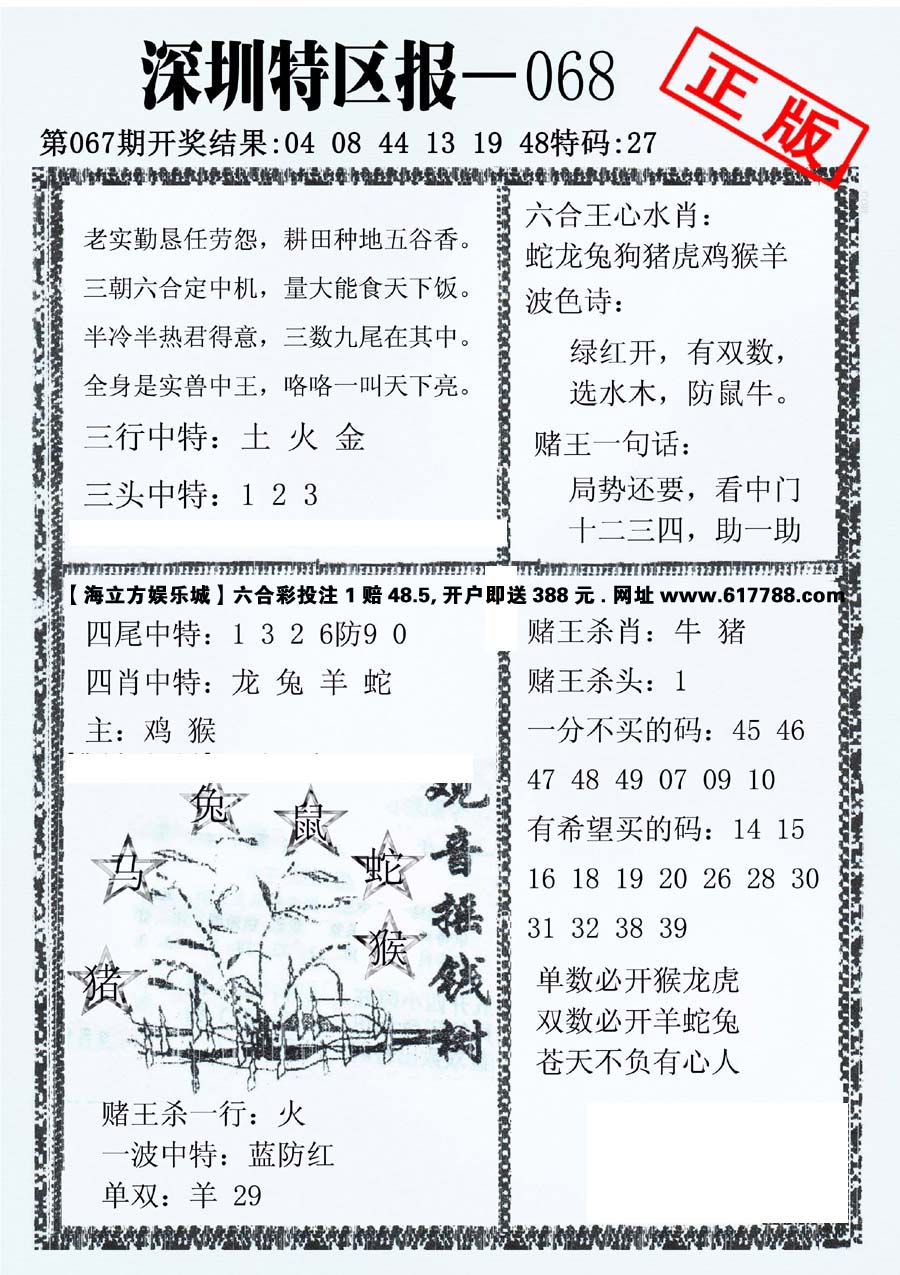 深圳特区报－068
正版
第067期开奖结果:04 08 44 13 19 48特码:27
老实勤恳任劳怨，耕田种地五谷香。
三朝六合定中机，量大能食天下饭。
半冷半热君得意，三数九尾在其中。
全身是实兽中王，咯咯一叫天下亮。
三行中特：土 火 金
三头中特：1 2 3
六合王心水肖：
蛇龙兔狗猪虎鸡猴羊
波色诗：
绿红开，有双数，
选水木，防鼠牛。
赌王一句话：
局势还要，看中门
十二三四，助一助
【海立方娱乐城】六合彩投注1赔48.5,开户即送388元.网址www.617788.com
四尾中特：1 3 2 6防9 0
四肖中特：龙 兔 羊 蛇
主：鸡 猴
兔
鼠
马
蛇
猴
猪
观音摇钱树
赌王杀一行：火
一波中特：蓝防红
单双：羊 29
赌王杀肖：牛 猪
赌王杀头：1
一分不买的码：45 46
47 48 49 07 09 10
有希望买的码：14 15
16 18 19 20 26 28 30
31 32 38 39
单数必开猴龙虎
双数必开羊蛇兔
苍天不负有心人